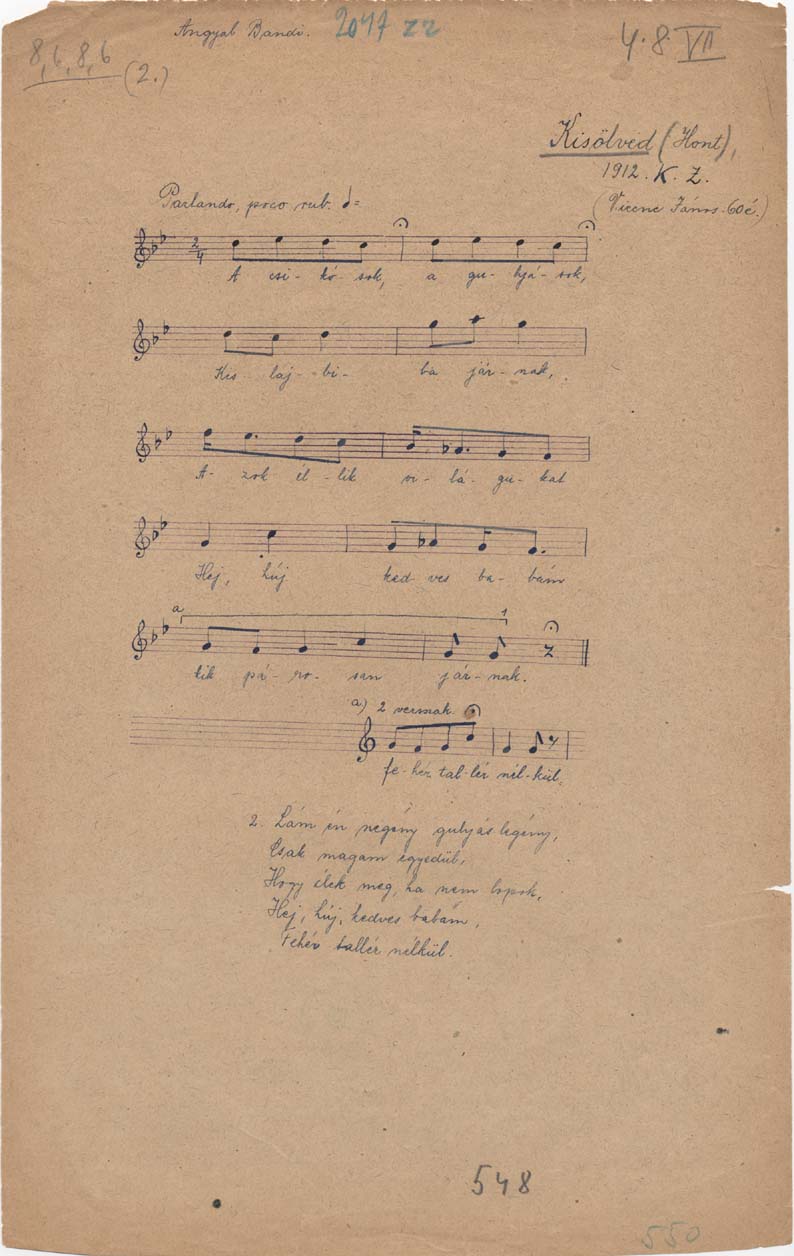 Angyal Bandi. 2047 zz
4.8. VII
8, 6, 8, 6
(2.)
Kisölved (Hont),
1912. K. Z.
János. 60 é.)
Parlando, poco rub. =
2/4
A csi- kó- sok, a gu- lyá- sok,
Kis láj- bi- ba jár- nak,
A- zok él- lik vi- lá- gu- kat
Hej, húj ked- ves ba- bám
a 1
kik pá- ro- san jár- nak.
a) 2 versnak.
fe- hér tal- lér nél- kül.
2. Lám én negény gulyás legény,
Csak magam egyedül,
Hogy élek meg, ha nem lopok,
Hej, húj, kedves babám,
Fehér tallér nélkül.
548
550